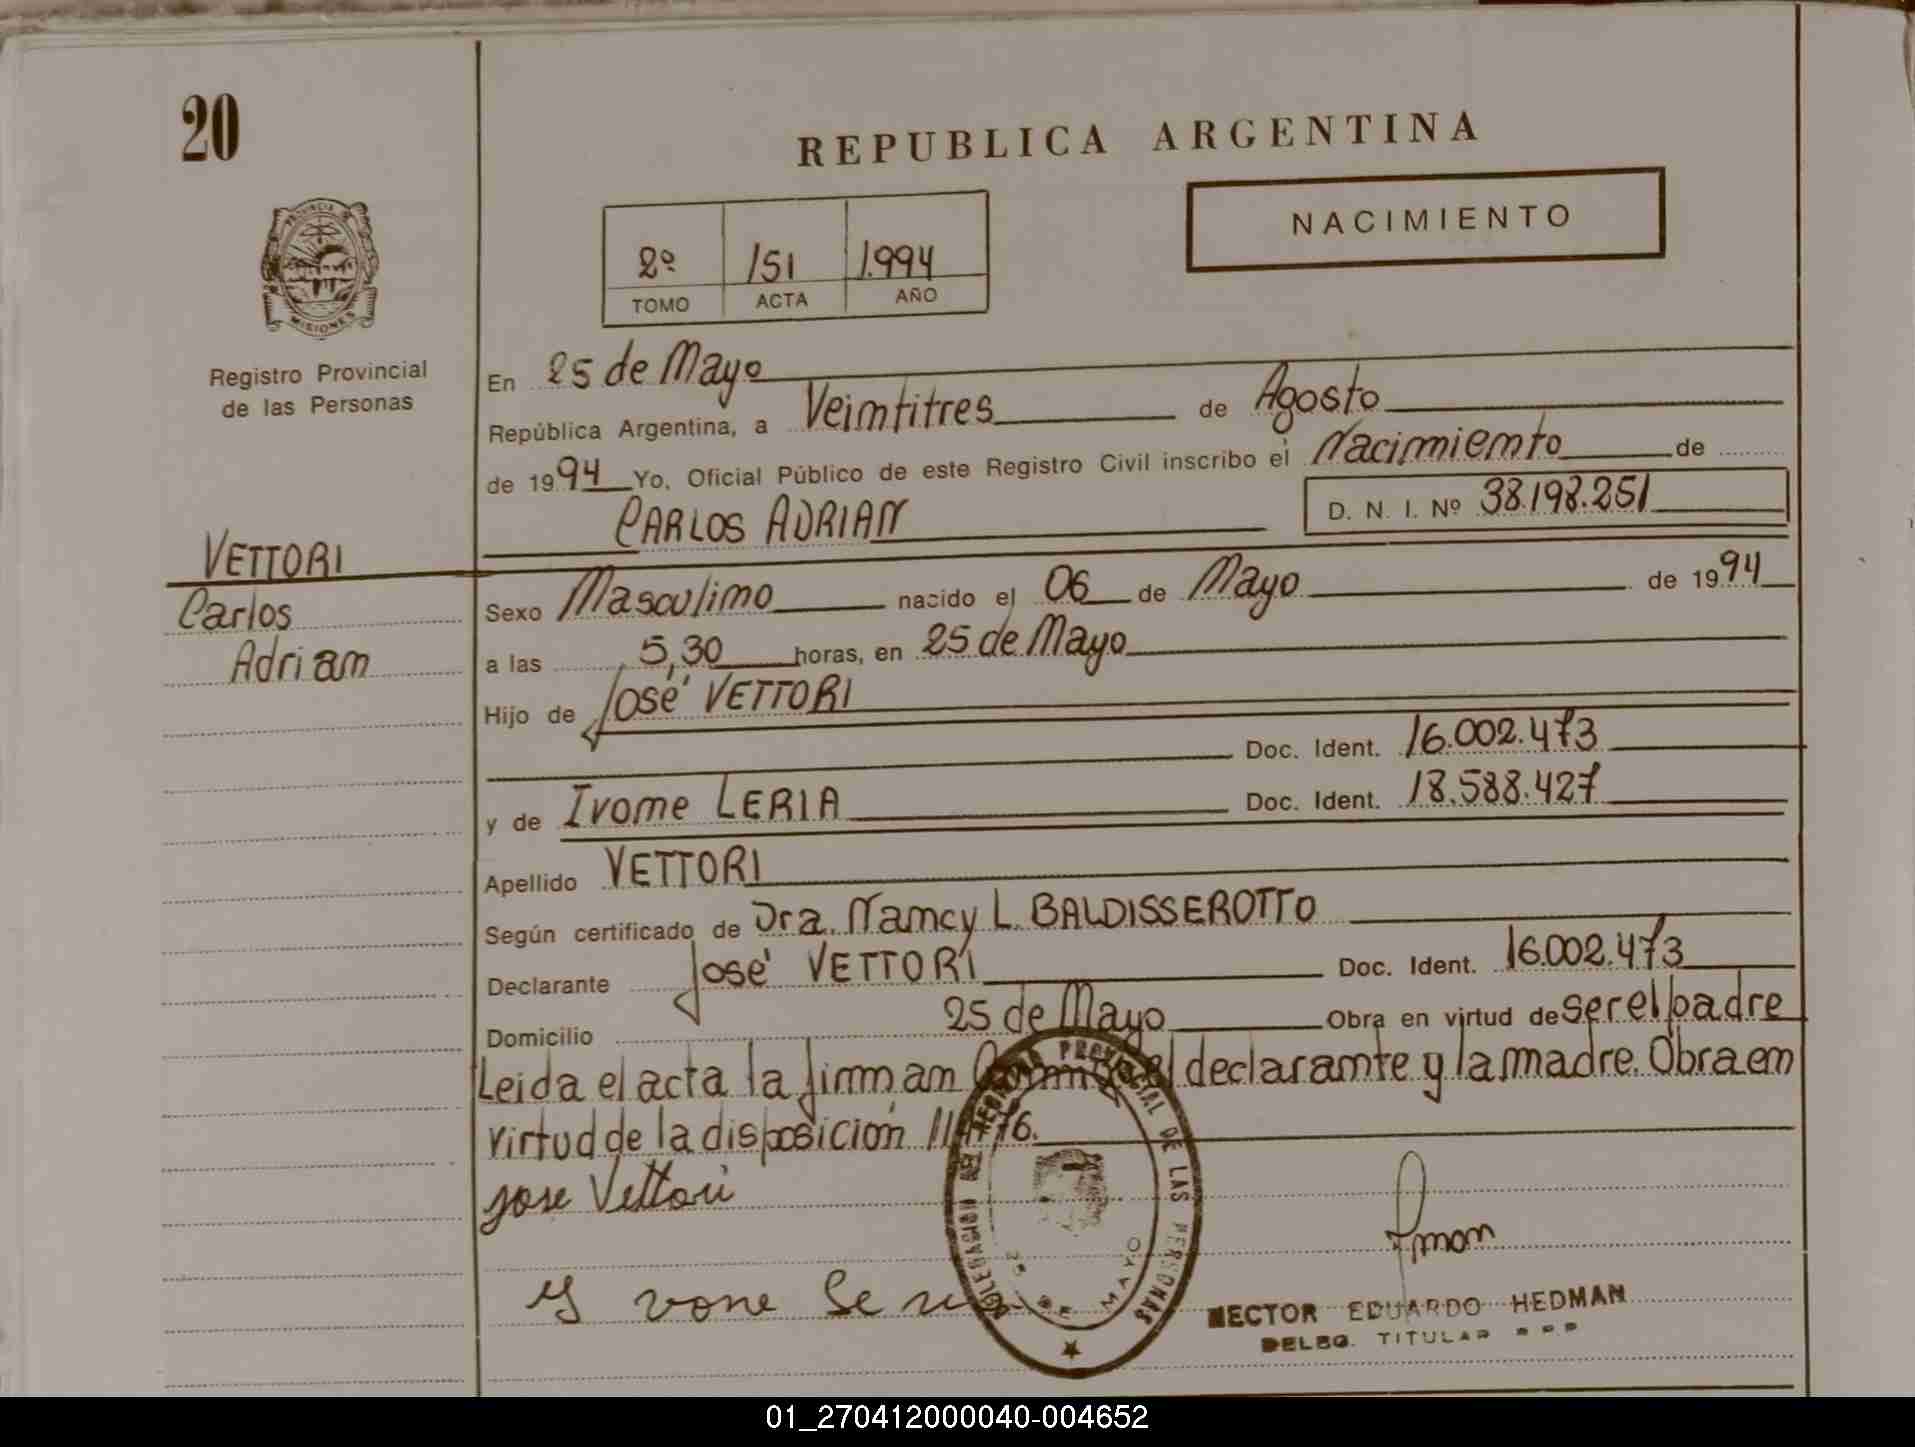 20
REPUBLICA ARGENTINA
NACIMIENTO
2º 151 1.994
TOMO ACTA AÑO
PROVINCIA DE MISIONES
Registro Provincial
de las Personas
VETTORI
Carlos
Adrian
En 25 de Mayo
República Argentina, a Veintitres de Agosto
de 1994 Yo, Oficial Público de este Registro Civil inscribo el Nacimiento de
CARLOS ADRIAN D. N. I. Nº 38.198.251
Sexo Masculino nacido el 06 de Mayo de 1994
a las 5,30 horas, en 25 de Mayo
Hijo de José VETTORI
Doc. Ident. 16.002.473
y de Ivone LERIA Doc. Ident. 18.588.427
Apellido VETTORI
Según certificado de Dra. Nancy L. BALDISSEROTTO
Declarante José VETTORI Doc. Ident. 16.002.473
Domicilio 25 de Mayo Obra en virtud de ser el padre
Leida el acta la firman el declarante y la madre. Obra en
virtud de la disposición
Jose Vettori
PROVINCIAL DE LAS PERSONAS
25 DE MAYO
HECTOR EDUARDO HEDMAN
DELEG. TITULAR
01_270412000040-004652